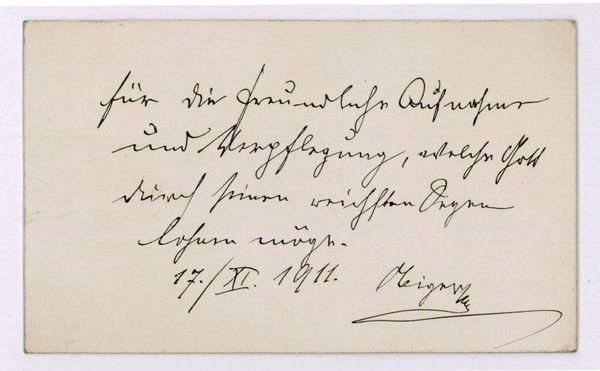 für die freundliche Aufnahme
und Verpflegung, welche Gott
durch seinen reichsten Segen
lohnen möge.
17./XI. 1911.